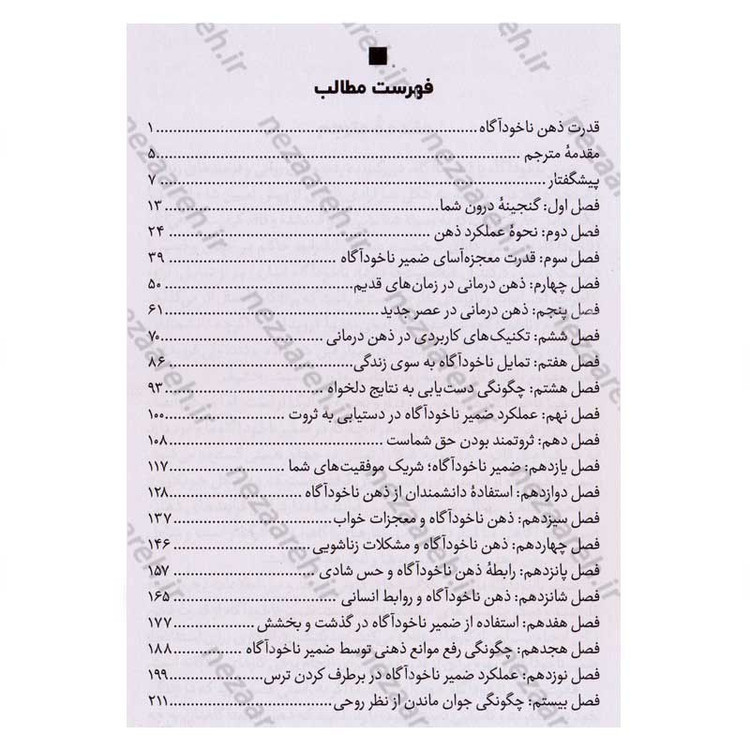 فهرست مطالب
قدرت ذهن ناخودآگاه ........ ۱
مقدمهٔ مترجم ........ ۵
پیشگفتار ........ ۷
فصل اول: گنجینهٔ درون شما ........ ۱۳
فصل دوم: نحوهٔ عملکرد ذهن ........ ۲۴
فصل سوم: قدرت معجزه‌آسای ضمیر ناخودآگاه ........ ۳۹
فصل چهارم: ذهن درمانی در زمان‌های قدیم ........ ۵۰
فصل پنجم: ذهن درمانی در عصر جدید ........ ۶۱
فصل ششم: تکنیک‌های کاربردی در ذهن درمانی ........ ۷۰
فصل هفتم: تمایل ناخودآگاه به سوی زندگی ........ ۸۶
فصل هشتم: چگونگی دست‌یابی به نتایج دلخواه ........ ۹۳
فصل نهم: عملکرد ضمیر ناخودآگاه در دستیابی به ثروت ........ ۱۰۰
فصل دهم: ثروتمند بودن حق شماست ........ ۱۰۸
فصل یازدهم: ضمیر ناخودآگاه؛ شریک موفقیت‌های شما ........ ۱۱۷
فصل دوازدهم: استفادهٔ دانشمندان از ذهن ناخودآگاه ........ ۱۲۸
فصل سیزدهم: ذهن ناخودآگاه و معجزات خواب ........ ۱۳۷
فصل چهاردهم: ذهن ناخودآگاه و مشکلات زناشویی ........ ۱۴۶
فصل پانزدهم: رابطهٔ ذهن ناخودآگاه و حس شادی ........ ۱۵۷
فصل شانزدهم: ذهن ناخودآگاه و روابط انسانی ........ ۱۶۵
فصل هفدهم: استفاده از ضمیر ناخودآگاه در گذشت و بخشش ........ ۱۷۷
فصل هجدهم: چگونگی رفع موانع ذهنی توسط ضمیر ناخودآگاه ........ ۱۸۸
فصل نوزدهم: عملکرد ضمیر ناخودآگاه در برطرف کردن ترس ........ ۱۹۹
فصل بیستم: چگونگی جوان ماندن از نظر روحی ........ ۲۱۱
nezaareh.ir